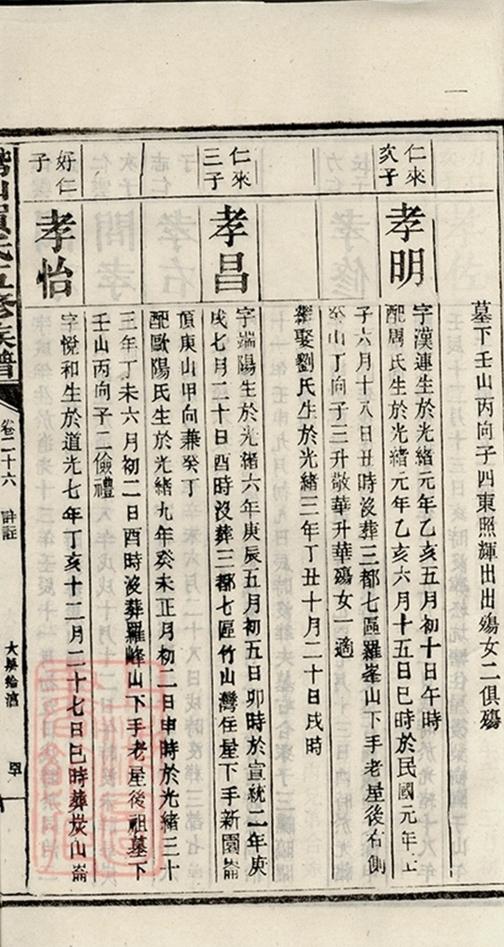 墓下壬山丙向子四東照輝出出殤女二俱殤
仁來
次子
孝明
字漢連生於光緒元年乙亥五月初十日午時
配周氏生於光緒元年乙亥六月十五日巳時於民國元年壬
子六月十八日丑時沒葬三都七區羅峯山下手老屋後右側
癸山丁向子三升敬華升華殤女一適
繼娶劉氏生於光緒三年丁丑十月二十日戌時
仁來
三子
孝昌
字端陽生於光緒六年庚辰五月初五日卯時於宣統二年庚
戌七月二十日酉時沒葬三都七區竹山灣任屋下手新園崙
頂庚山甲向兼癸丁
配歐陽氏生於光緒九年癸未正月初二日申時於光緒三十
三年丁未六月初二日酉時沒葬羅峰山下手老屋後祖墓下
壬山丙向子二儉禮
好仁
子
孝怡
字悅和生於道光七年丁亥十二月二十七日巳時葬崁山崙
賀氏五修族譜
卷二十六
大屋